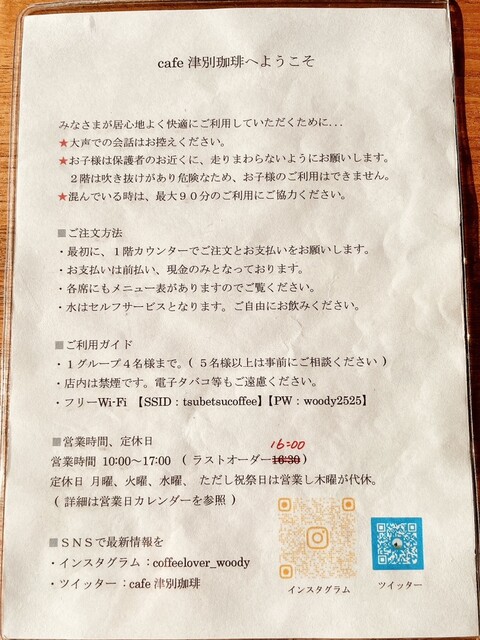 cafe 津別珈琲へようこそ
みなさまが居心地よく快適にご利用していただくために...
★大声での会話はお控えください。
★お子様は保護者のお近くに、走りまわらないようにお願いします。
２階は吹き抜けがあり危険なため、お子様のご利用はできません。
★混んでいる時は、最大９０分のご利用にご協力ください。
■ご注文方法
・最初に、１階カウンターでご注文とお支払いをお願いします。
・お支払いは前払い、現金のみとなっております。
・各席にもメニュー表がありますのでご覧ください。
・水はセルフサービスとなります。ご自由にお飲みください。
■ご利用ガイド
・１グループ４名様まで。( ５名様以上は事前にご相談ください )
・店内は禁煙です。電子タバコ等もご遠慮ください。
・フリーWi-Fi 【SSID：tsubetsucoffee】【PW：woody2525】
■営業時間、定休日
16:00
営業時間 10:00～17:00 ( ラストオーダー16:30 )
定休日 月曜、火曜、水曜、 ただし祝祭日は営業し木曜が代休。
( 詳細は営業日カレンダーを参照 )
■ＳＮＳで最新情報を
・インスタグラム：coffeelover_woody
・ツイッター：cafe 津別珈琲
インスタグラム
ツイッター